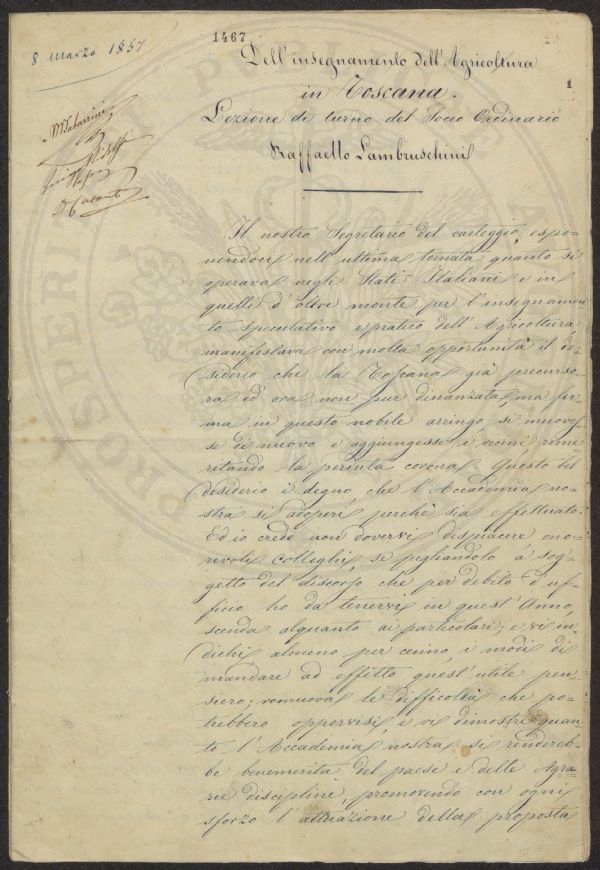 8 Marzo 1857
1467
20
1
Dell'insegnamento dell'Agricoltura
in Toscana.
Lezione di turno del Socio Ordinario
Raffaello Lambruschini
Il nostro Segretario del carteggio, espo-
nendoci nell'ultima tornata quanto si
operava negli Stati Italiani e in
quelli d'oltre monte per l'insegnamen
to speculativo e pratico dell'Agricoltura,
manifestava con molta opportunità il de-
siderio che la Toscana già precurso-
ra ed ora non pur dinanzata, ma fer-
ma in questo nobile arringo, si muoves-
se di nuovo e aggiungesse i vicini, rime-
ritando la perduta corona. Questo bel
desiderio è degno, che l'Accademia no-
stra si adoperi perchè sia effettuato.
Ed io credo non dovervi dispiacere ono-
revoli colleghi, se pigliandolo a sog-
getto del discorso che per debito d'uf-
ficio ho da tenervi in quest'Anno,
scenda alquanto ai particolari; e vi in-
dichi almeno per cenno, i modi di
mandare ad effetto quest'utile pen-
siero; rimuova le difficoltà che po-
trebbero opporvisi, e vi dimostri quan-
to l'Accademia nostra si rendereb-
be benemerita del paese e delle Agra-
rie discipline, promovendo con ogni
sforzo l'attuazione della proposta
PROSPERITATI PUBLICAE